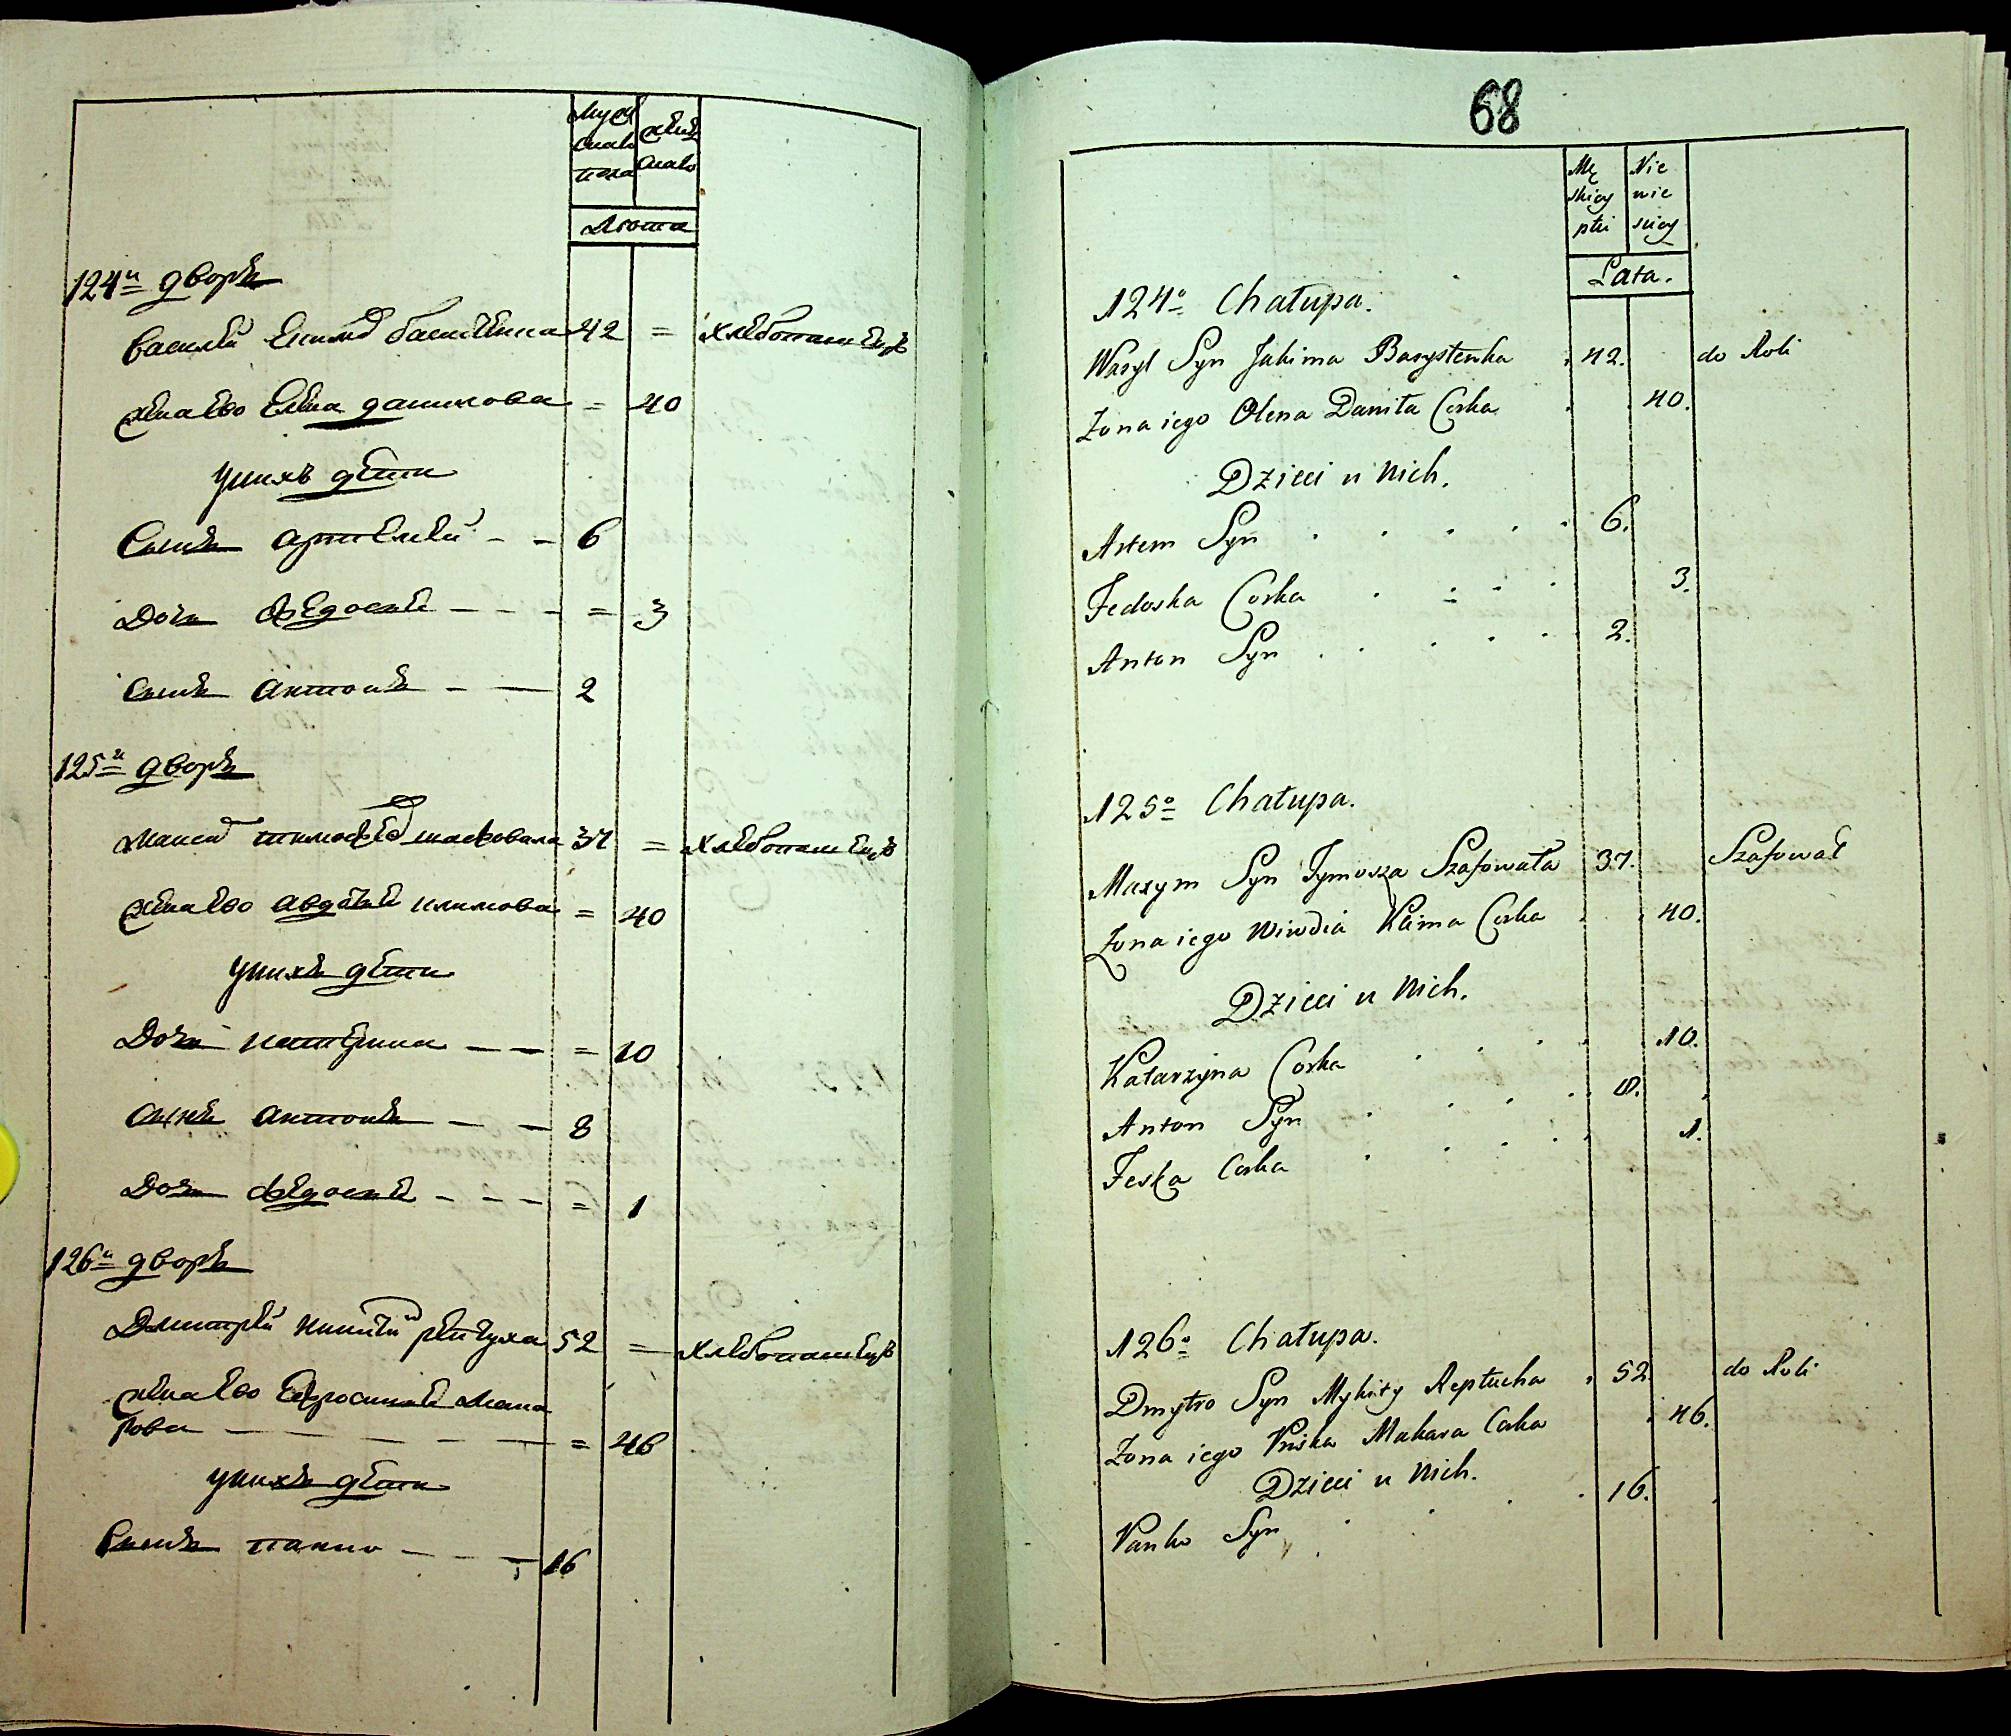 Муж
скаго
пола
Жен
скаго
Лѣта
124й дворъ
Василей Екимов Басистенка 42 = хлѣбопашецъ
Жена ево Елена данилова = 40
У нихъ дѣти
Сынъ Артемей - - 6
Дочь Федосия - - - = 3
Сынъ Антонъ - - 2
125й дворъ
Максим тимофеев шафовала 37 = хлѣбопашецъ
Жена ево Авдотия климова = 40
У нихъ дѣти
Дочь катерина - - = 10
Сынъ Антонъ - - 8
Дочь Федосия - - - = 1
126й дворъ
Дмитрей никитин рептуха 52 = хлѣбопашецъ
Жена ево Ефросиния Мака
рова - - - - = 46
У нихъ дѣти
Сынъ панко - - - 16
68
Mę
skiey
płci
Nie
wie
sciey
Lata.
124o Chałupa.
Wasyl Syn Jakima Basystenka 42. do Roli
Zona iego Olena Daniła Corka 40.
Dzieci u Nich.
Artem Syn 6.
Fedoska Corka 3.
Anton Syn 2.
125o Chałupa.
Maxym Syn Tymosza Szafowała 37. Szafował
Zona iego Wiwdia Klima Corka 40.
Dzieci u Nich.
Katarzyna Corka 10.
Anton Syn 8.
Feska Corka 1.
126o Chałupa.
Dmytro Syn Mykity Reptucha 52. do Roli
Zona iego Pryska Makara Corka 46.
Dzieci u Nich.
Panko Syn 16.